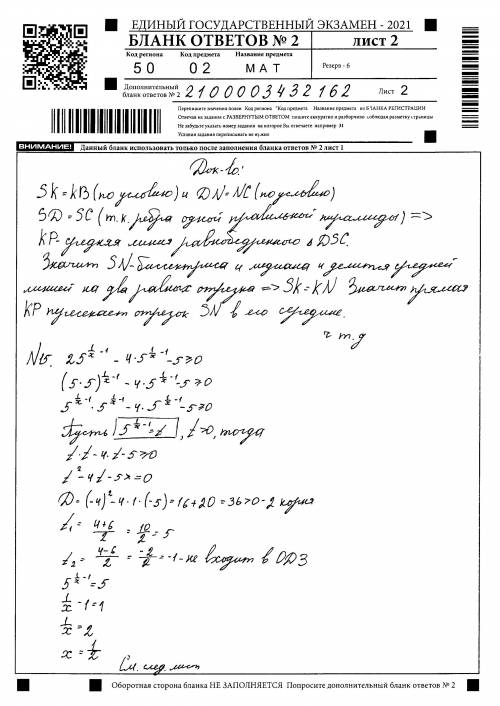 ЕДИНЫЙ ГОСУДАРСТВЕННЫЙ ЭКЗАМЕН - 2021
БЛАНК ОТВЕТОВ № 2
лист 2
Код региона Код предмета Название предмета
50 02 МАТ
Резерв - 6
Дополнительный бланк ответов № 2
2100003432162
Лист 2
Перепишите значения полей "Код региона" "Код предмета" "Название предмета" из БЛАНКА РЕГИСТРАЦИИ
Отвечая на задания с РАЗВЕРНУТЫМ ОТВЕТОМ пишите аккуратно и разборчиво соблюдая разметку страницы
Не забудьте указать номер задания на которое Вы отвечаете например 31
Условия задания переписывать не нужно
ВНИМАНИЕ! Данный бланк использовать только после заполнения бланка ответов № 2 лист 1
Док-во:
SK=KB (по условию) и DN=NC (по условию)
SD=SC (т.к. ребра одной правильной пирамиды) =>
KP-средняя линия равнобедренного ∆ DSC.
Значит SN-биссектриса и медиана и делится средней
линией на два равных отрезка => SK=KN Значит прямая
KP пересекает отрезок SN в его середине.
ч т.д
N15. 25^(1/x -1) - 4·5^(1/x -1) -5≥0
(5·5)^(1/x -1) - 4·5^(1/x -1) -5≥0
5^(1/x -1) · 5^(1/x -1) - 4·5^(1/x -1) -5≥0
Пусть 5^(1/x -1) = t, t>0, тогда
t·t-4·t-5≥0
t²-4t-5=0
D=(-4)²-4·1·(-5)=16+20=36>0-2 корня
t₁ = (4+6)/2 = 10/2 = 5
t₂ = (4-6)/2 = -2/2 = -1 - не входит в ОДЗ
5^(1/x -1) = 5
1/x -1=1
1/x = 2
x = 1/2
См. след. лист
Оборотная сторона бланка НЕ ЗАПОЛНЯЕТСЯ Попросите дополнительный бланк ответов № 2